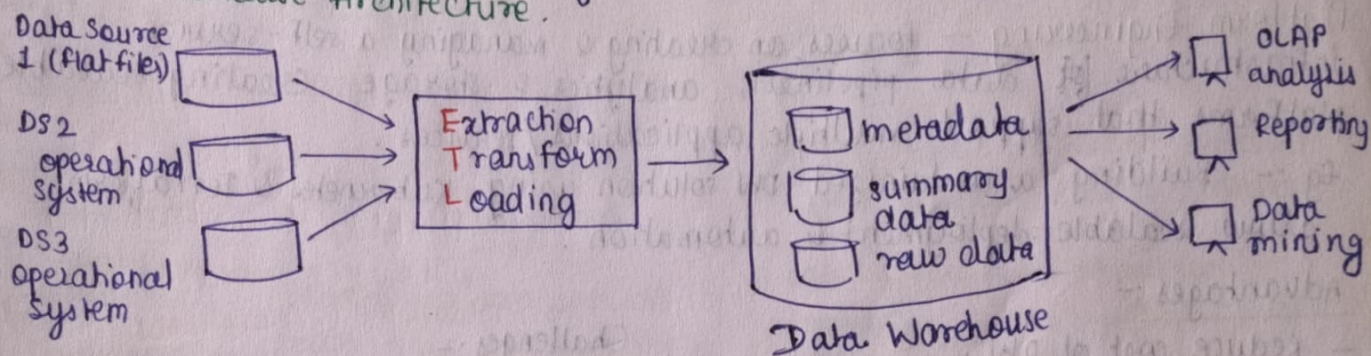 Architecture.
Data Source
1 (flat files)
DS2
operational
system
DS3
operational
System
Extraction
Transform
Loading
metadata
summary
data
raw data
Data Warehouse
OLAP
analysis
Reporting
Data
mining